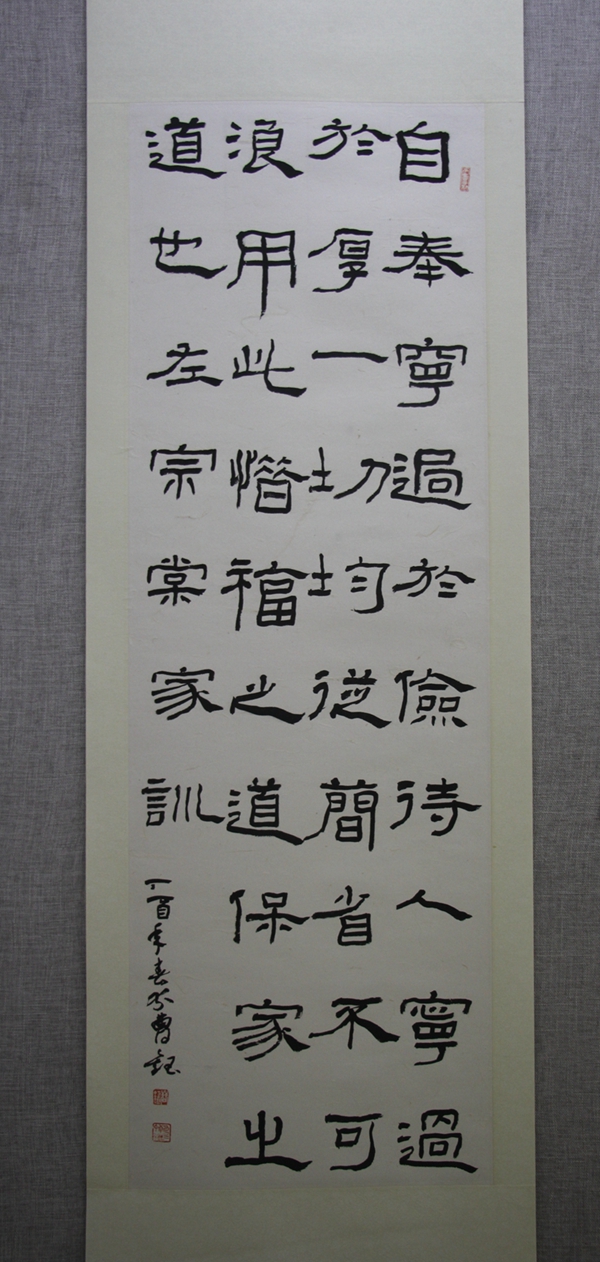 自奉寧過於儉待人寧過
於厚一切均從簡省不可
浪用此惜福之道保家之
道也左宗棠家訓
丁酉年春 曹鈺